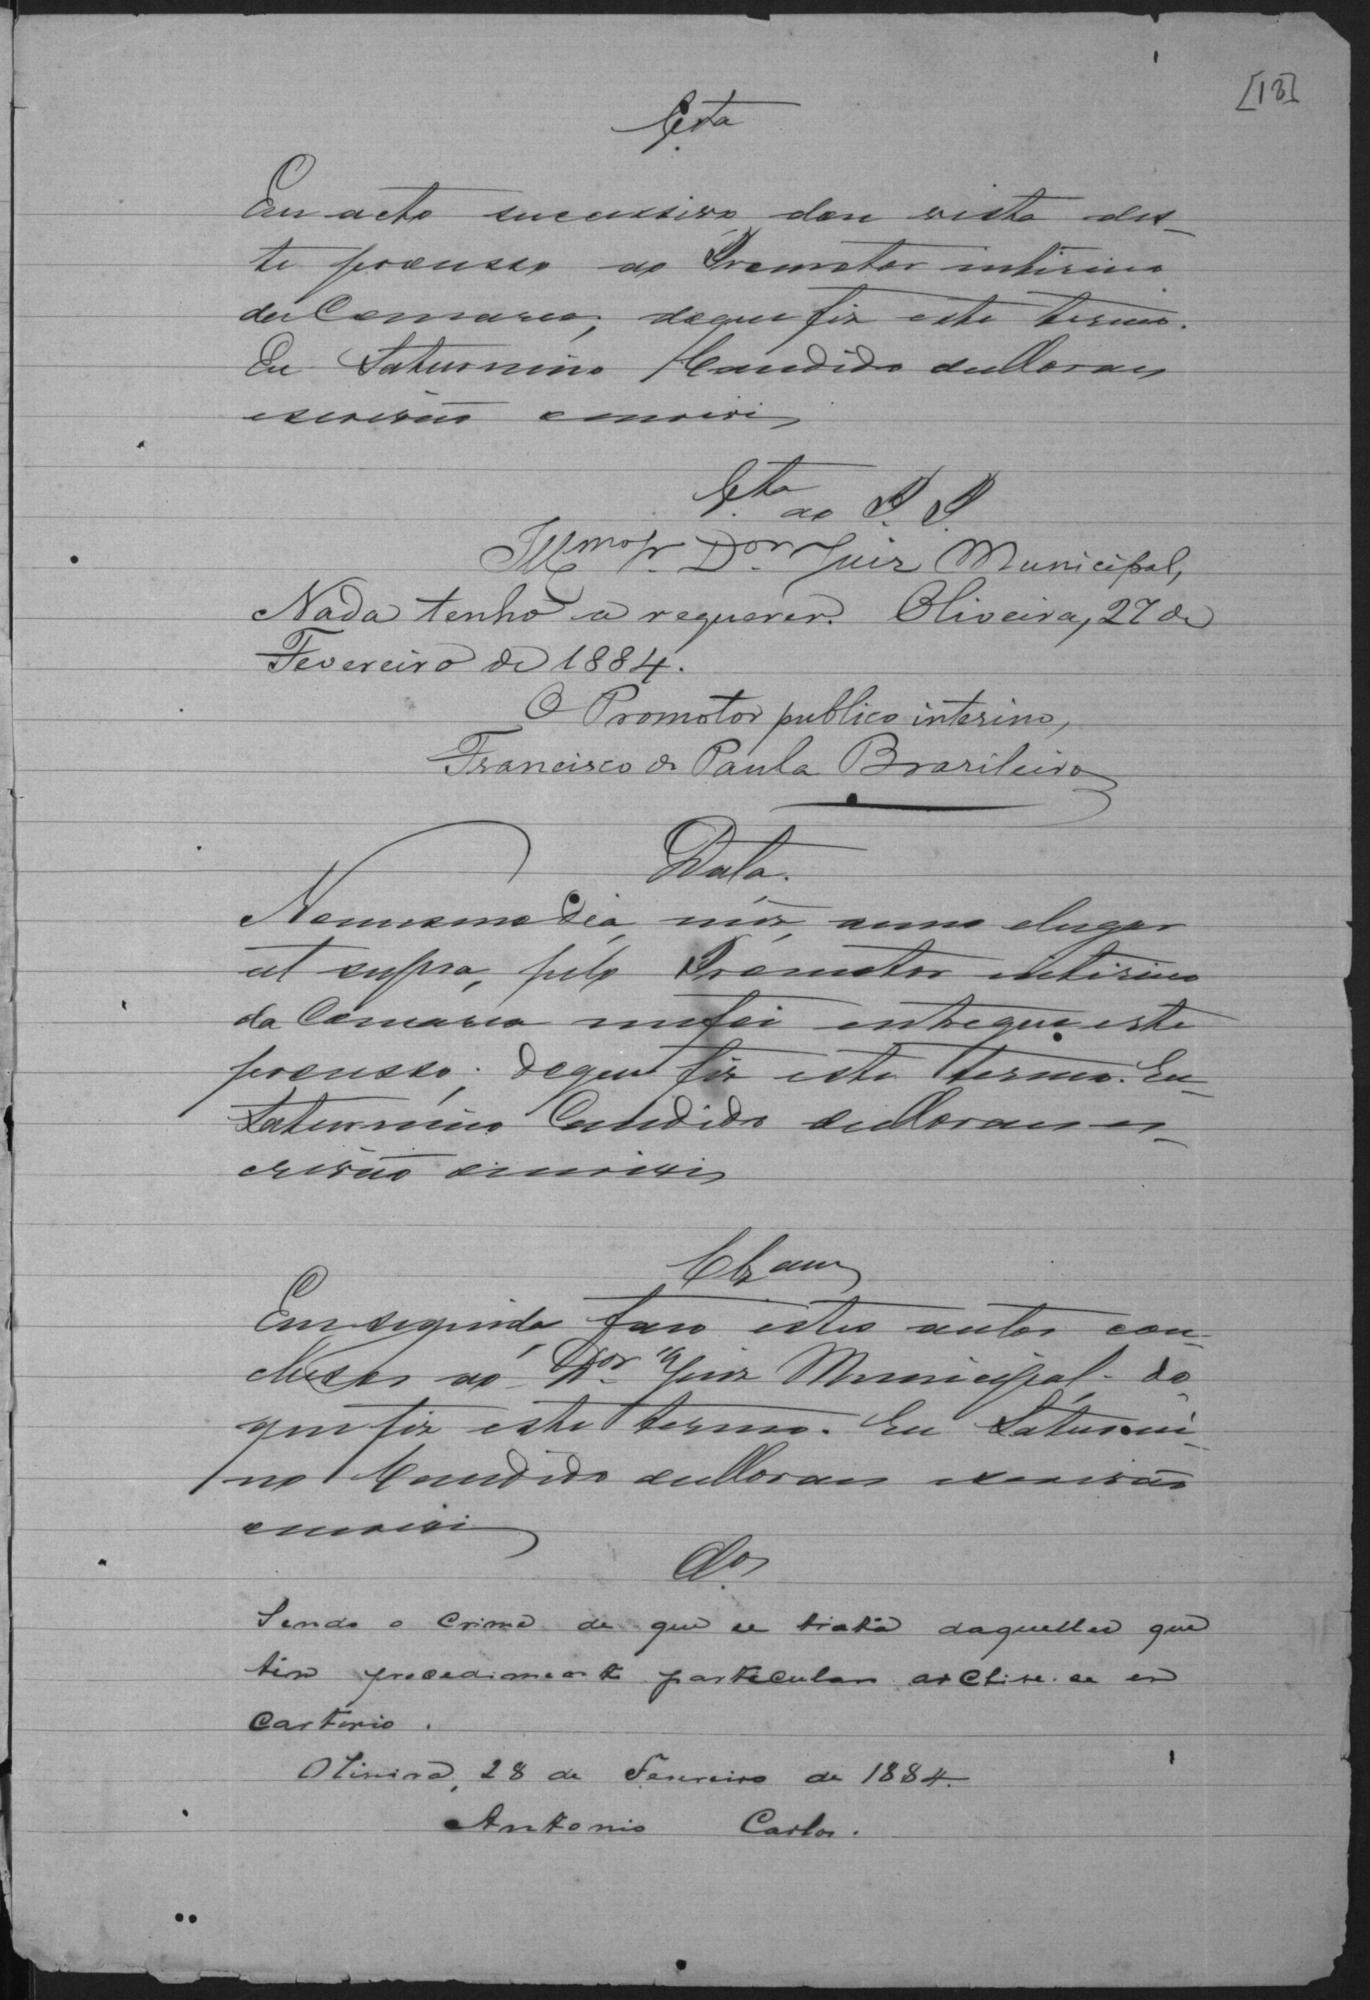 [18]
V.ta
Em acto successivo dou vista des-
te processo ao Promotor interino
da Comarca, do que fiz este termo.
Eu Saturnino Candido de Moraes
escrivão escrevi
V.ta ao P. P.
Illmo Sr. Dor Juiz Municipal,
Nada tenho a requerer. Oliveira, 27 de
Fevereiro de 1884.
O Promotor publico interino,
Francisco de Paula Brasileiro
Data.
No mesmo dia, mez, anno e lugar
ut supra, pelo Promotor interino
da Comarca me foi entregue este
processo; do que fiz este termo. Eu
Saturnino Candido de Moraes es-
crivão escrevi
Clzam
Em seguida, faço estes autos con-
clusos ao Dor Juiz Municipal. do
que fiz este termo. Eu Saturni-
no Candido de Moraes escrivão
escrevi
Clos
Sendo o crime de que se trata daquelles que
tem procedimento particular archive-se em
cartorio.
Oliveira, 28 de Fevereiro de 1884.
Antonio Carlos.